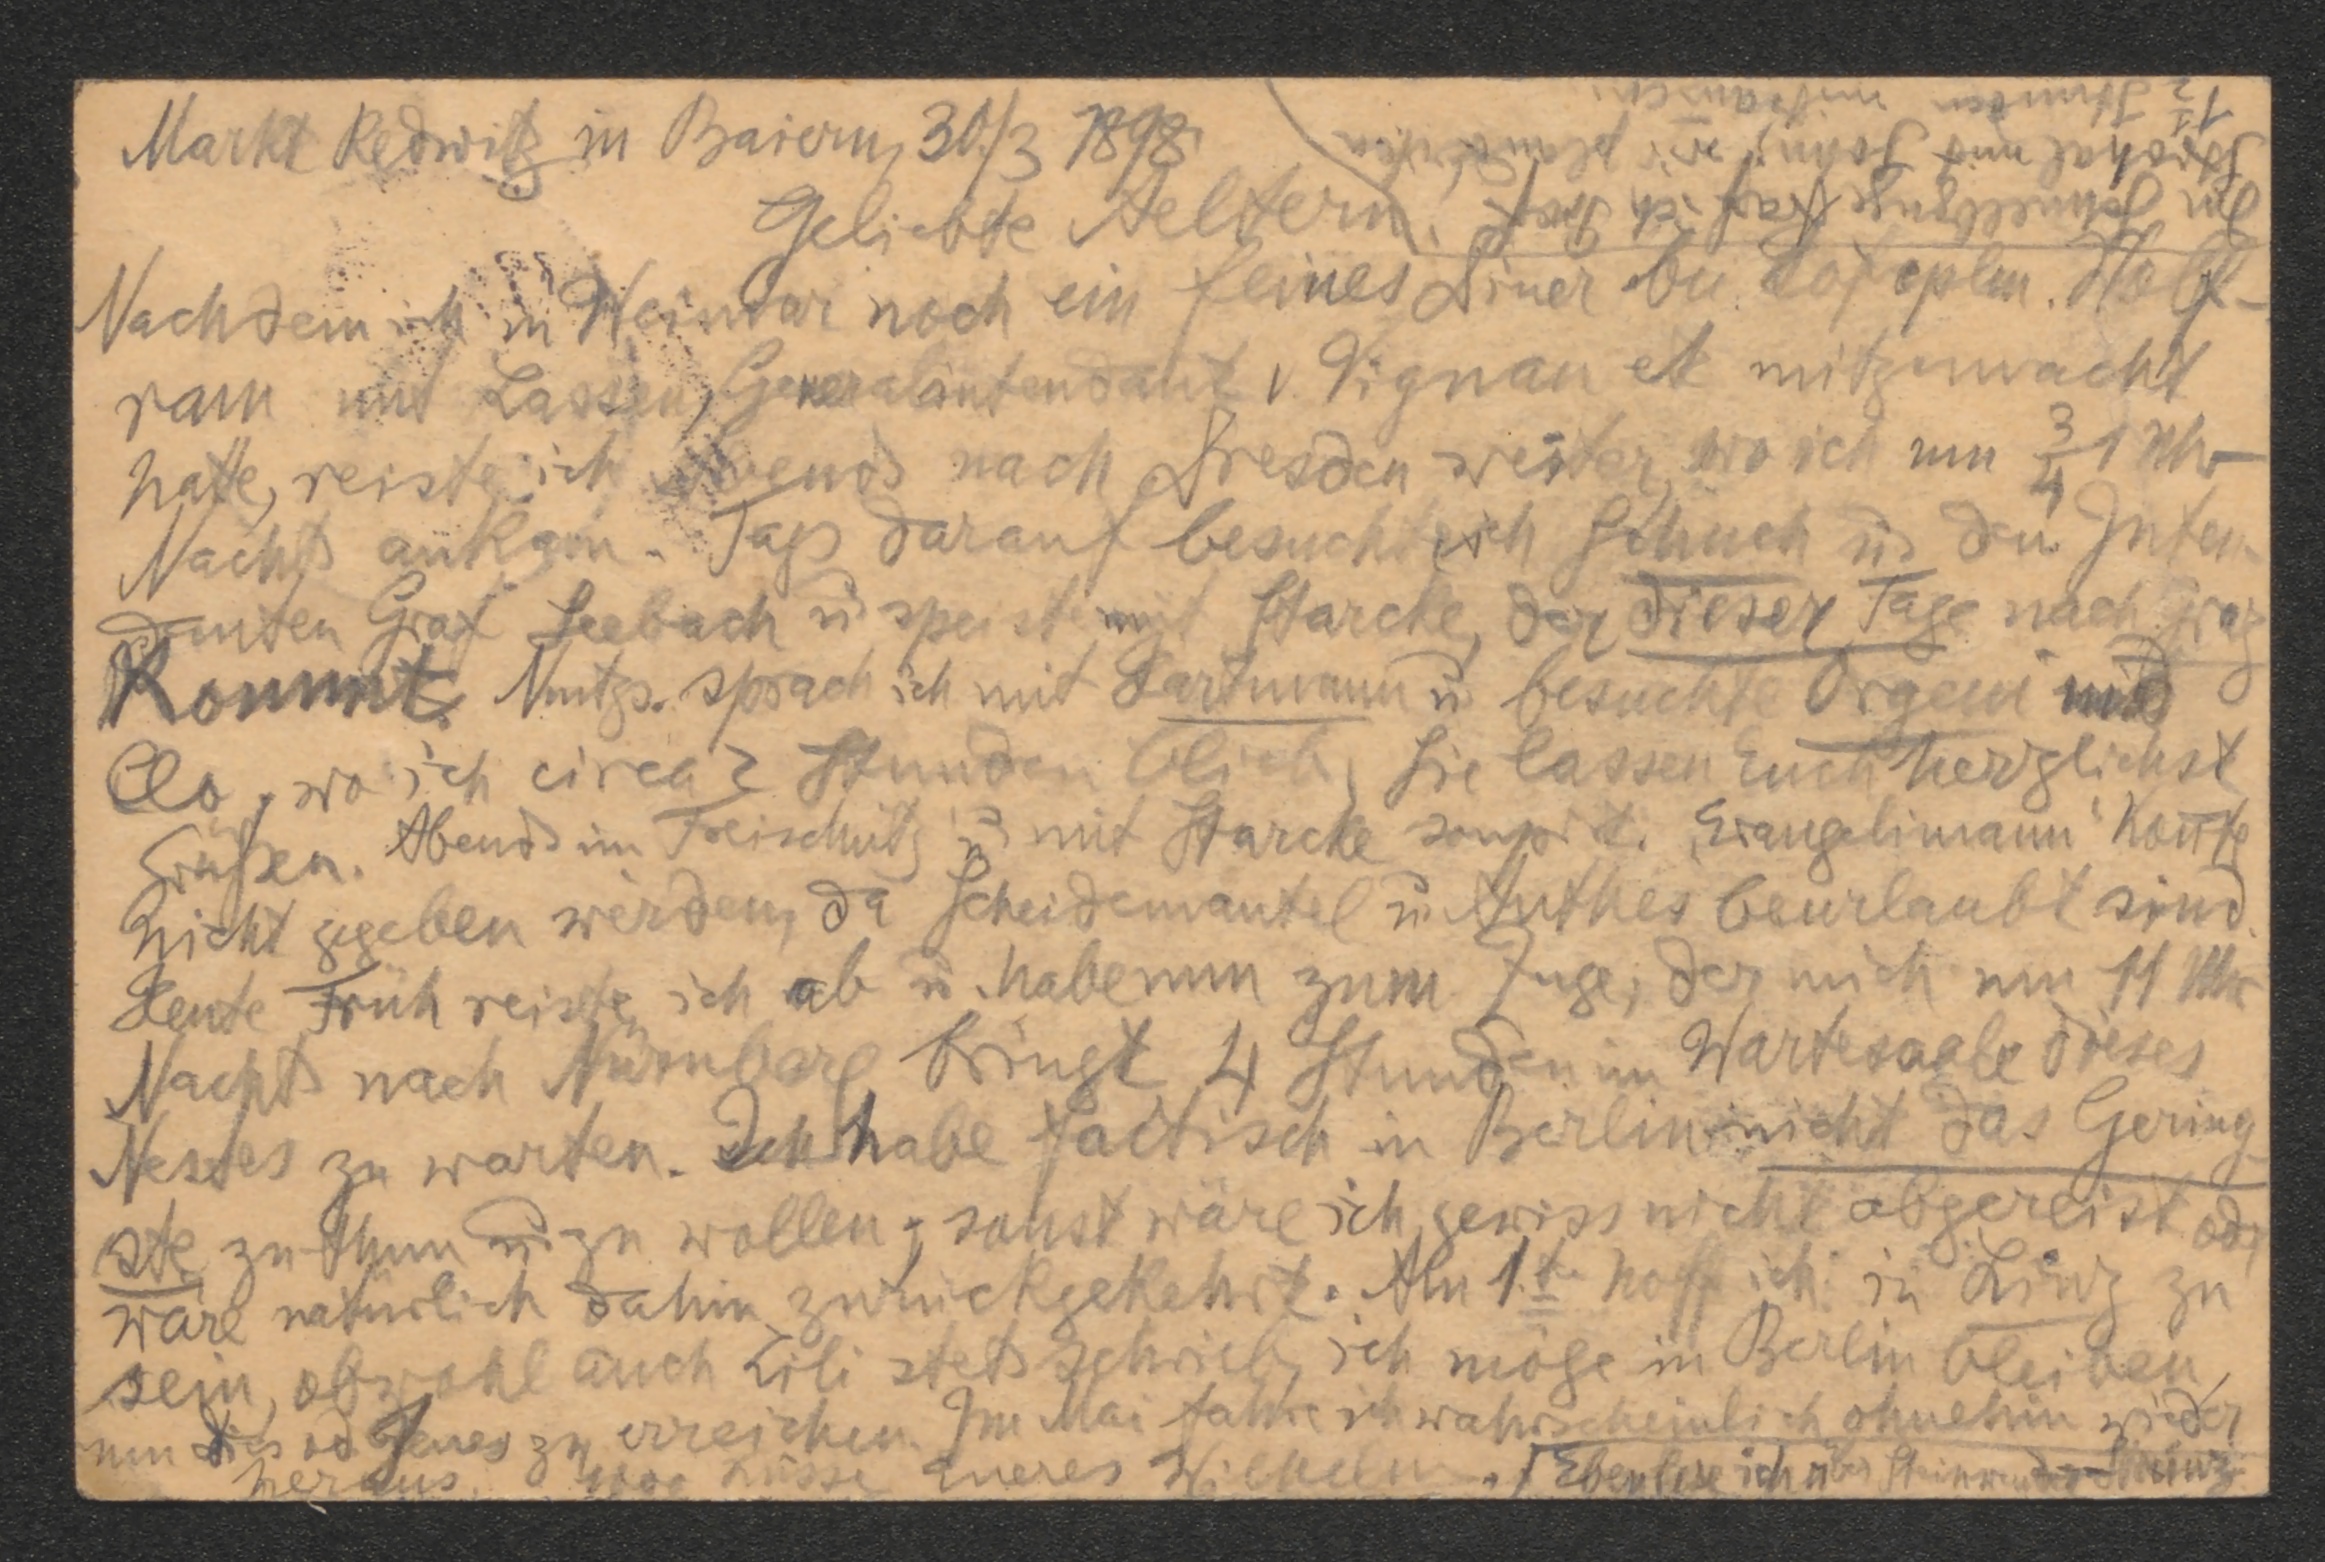 Markt Redwitz in Baiern, 30./3 1898.
Geliebte Aeltern!
Nachdem ich in Weimar noch ein feines Diner bei Hofcplm. Half-
ram mit Lassen, Generalintendant v. Vignau etc mitgemacht
hatte, reiste ich Abends nach Dresden weiter, wo ich um 3/4 1 Uhr
Nachts ankam. Tags darauf besuchte ich Schuch u. den Inten-
danten Graf Seebach u speiste mit Starcke, der dieser Tage nach Graz
Kommt. Nmtgs. sprach ich mit Hartmann u besuchte Orgeni und
Clo, wo ich circa 2 Stunden blieb, Sie lassen Euch herzlichst
Grüßen. Abends im Freischütz u mit Starcke soupirt. „Evangelimann" konnte
nicht gegeben werden, da Scheidemantel u. Anthes beurlaubt sind.
Heute Früh reiste ich ab u. habe nun zum Zuge, der mich um 11 Uhr
Nachts nach Nürnberg bringt 4 Stunden im Wartesaale dieses
Nestes zu warten. Ich habe factisch in Berlin nicht das Gering-
ste zu thun u. zu wollen; sonst wäre ich gewiss nicht abgereist od.
wäre natürlich dahin zurückgekehrt. Am 1.t hoff ich in Linz zu
sein, obwohl auch Lili stets schrieb, ich möge in Berlin bleiben,
um dies od Jenes zu erreichen. Im Mai fahre ich wahrscheinlich ohnehin wieder
heraus. 1000 Küsse Eueres Wilhelm.
Eben lese ich über Steinwender-Stainz
Im Schnellzuge traf ich Prof.
Strohal und Sohn, wir plauderten
1 1/2 Stunden mitsamm.